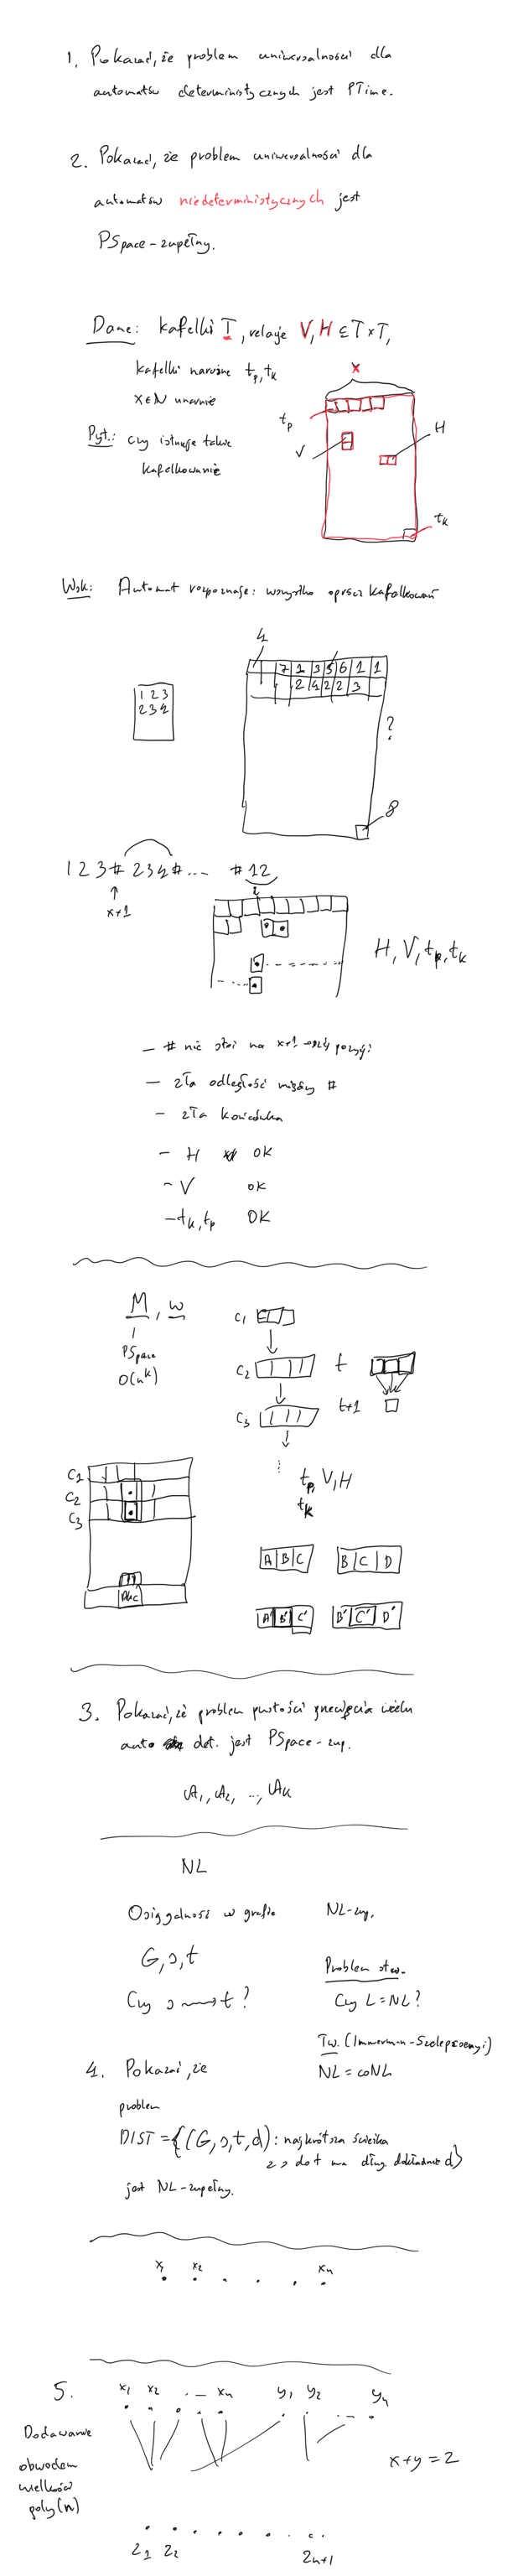 1. Pokazać, że problem uniwersalności dla
automatów deterministycznych jest PTime.
2. Pokazać, że problem uniwersalności dla
automatów niedeterministycznych jest
PSpace-zupełny.
Dane: kafelki T, relacje V, H ⊆ T×T,
kafelki narożne t_p, t_k
x∈N unarnie
x
t_p
V
H
t_k
Pyt.: czy istnieje takie
kafelkowanie
Wsk: Automat rozpoznaje: wszystko oprócz kafelkowań
4
7 1 3 5 6 1 1
2 4 2 2 3
1 2 3
2 3 4
?
8
1 2 3 # 2 3 4 # ... # 12
↑
x+1
H, V, t_p, t_k
- # nie stoi na x+1-szej pozycji
- zła odległość między #
- zła końcówka
- H OK
- V OK
- t_k, t_p OK
M, w
PSpace
O(n^k)
C1
C2
C3
t
t+1
t_p, V, H
t_k
C1
C2
C3
A|B|C B|C|D
A'|B'|C' B'|C'|D'
3. Pokazać, że problem pustości przecięcia wielu
auto det. jest PSpace-zup.
A1, A2, ..., Ak
NL
Osiągalność w grafie NL-zup.
G, s, t
Czy s ⟶ t?
Problem otw.
Czy L = NL?
Tw. (Immerman-Szelepcsenyi)
NL = coNL
4. Pokazać, że
problem
DIST = {(G, s, t, d): najkrótsza ścieżka
z s do t ma dług. dokładnie d}
jest NL-zupełny.
x1 x2 xn
5. x1 x2 ... xn y1 y2 ... yn
Dodawanie
obwodem
wielkości
poly(n)
x + y = z
z1 z2 zn+1